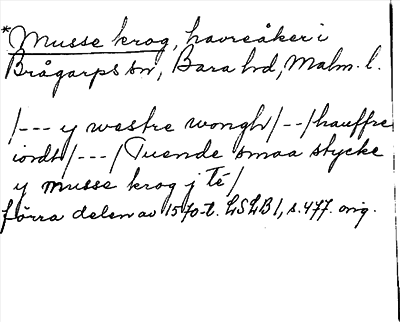 *Musse krog, havreåker i
Brågarps sn, Bara hd, Malm. l.
/--- y westre wongh/--/hauffre
iordt/---/Tuende smaa stycke
y musse krog j Té/
förra delen av 1570-t. LSLB 1, s. 477. orig.